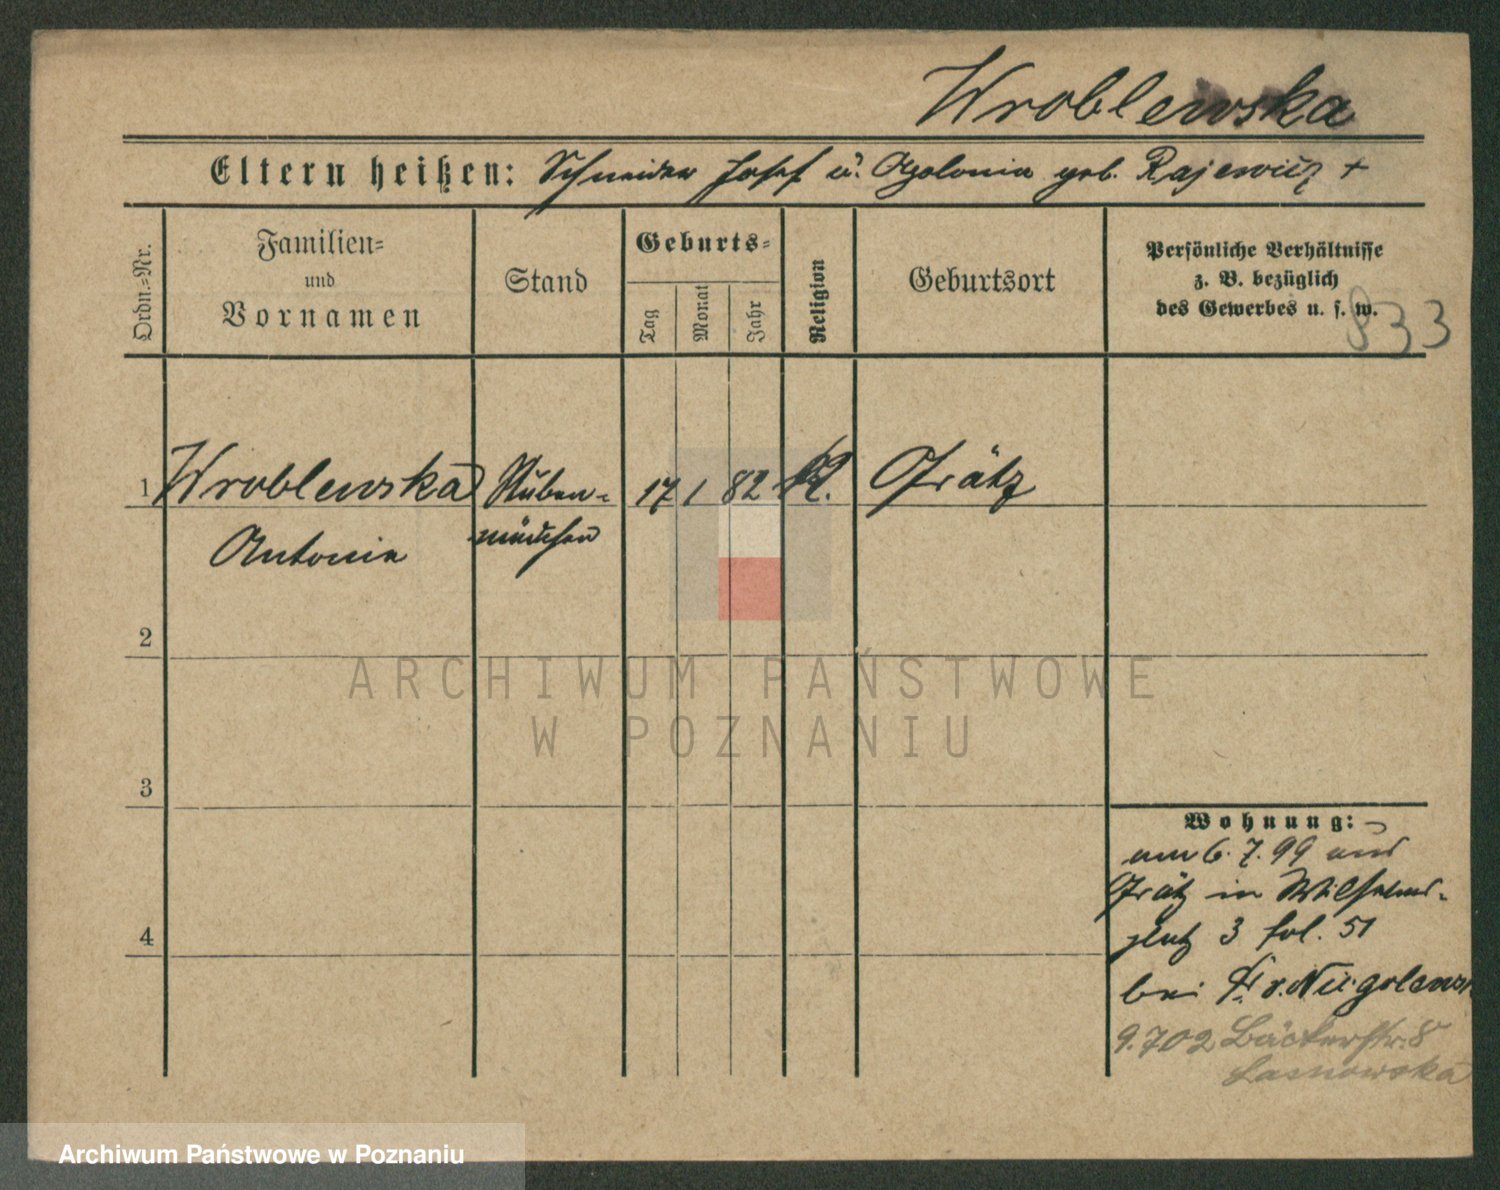 Wroblewska
Eltern heißen: Schneider Josef u. Apolonia geb. Rajewicz +
Ordn.=Nr.
Familien=
und
Vornamen
Stand
Geburts=
Tag
Monat
Jahr
Religion
Geburtsort
Persönliche Verhältnisse
z. B. bezüglich
des Gewerbes u. s. w.
833
1 Wroblewska Stuben- 17 1 82 K. Grätz
Antonie mädchen
2
3
4
ARCHIWUM PAŃSTWOWE
W POZNANIU
Wohnung:
am 6. 7. 99 aus
Grätz in Wilhelms-
platz 3 fol. 51
bei
9.702 Bäckerstr. 8
Archiwum Państwowe w Poznaniu